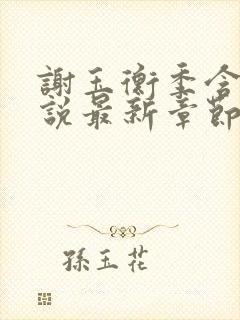 謝玉衡季含
說最新章節
孫玉花